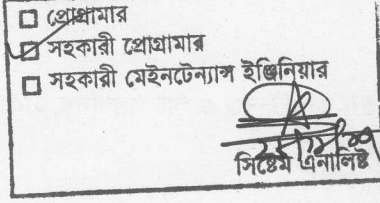 □ প্রোগ্রামার
□ সহকারী প্রোগ্রামার
□ সহকারী মেইনটেন্যান্স ইঞ্জিনিয়ার
সিষ্টেম এনালিষ্ট